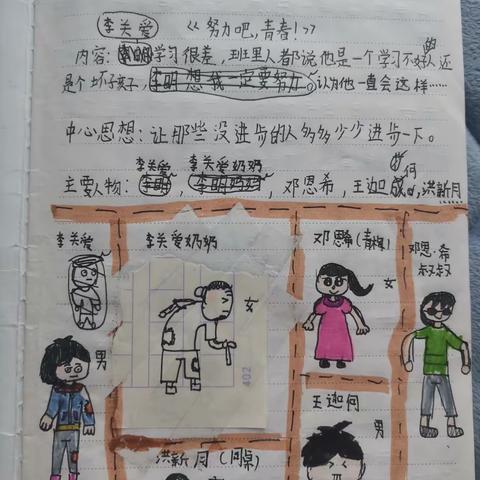 李关爱 《努力吧,青春!》
内容:学习很差,班里人都说他是一个学习不好的人还
是个坏孩子,李明想我一定要努力。认为他一直会这样……
中心思想:让那些没进步的人多多少少进步一下。
李关爱 李关爱奶奶
主要人物:李明,李明妈妈,邓恩希,王迦何,洪新月
李关爱
李关爱奶奶
邓恩希(青梅)
邓恩希
叔叔
女
女
男
402
王迦何
男
洪新月(同桌)